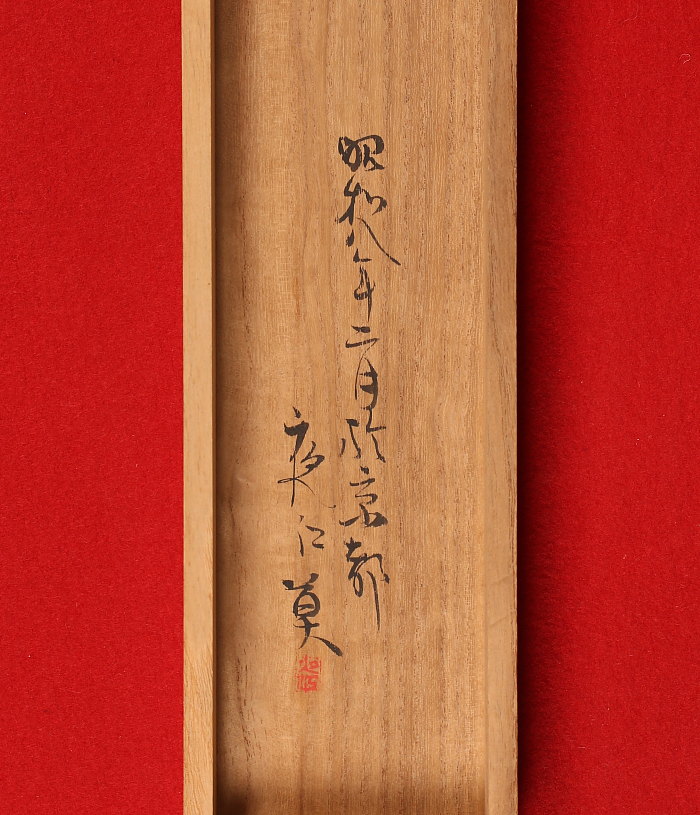 昭和八年二月於京都
夜江莫